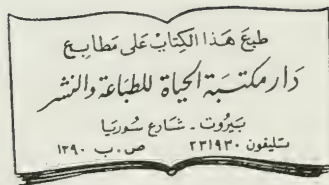 طبع هذا الكتاب على مطابع
دار مكتبة الحياة للطباعة والنشر
بيروت - شارع سوريا
تليفون ٢٣١٩٣٠ ص . ب ١٣٩٠